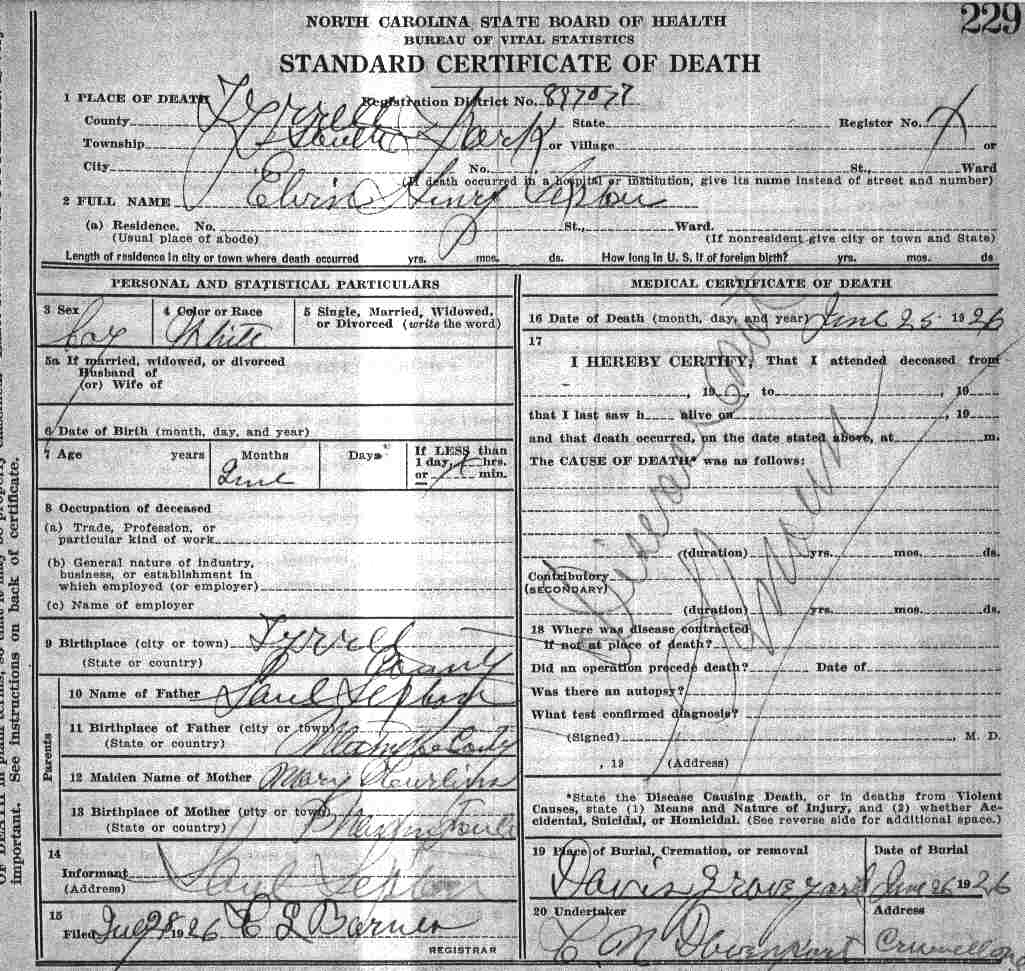 229
NORTH CAROLINA STATE BOARD OF HEALTH
BUREAU OF VITAL STATISTICS
STANDARD CERTIFICATE OF DEATH
1 PLACE OF DEATH Registration District No. 897077
County Tyrrell State Register No.
Township South Fork or Village or
City No. St., Ward
(If death occurred in a hospital or institution, give its name instead of street and number)
2 FULL NAME Elvin Henry
(a) Residence. No. St., Ward.
(Usual place of abode) (If nonresident give city or town and State)
Length of residence in city or town where death occurred yrs. mos. ds. How long in U. S. if of foreign birth? yrs. mos. ds
PERSONAL AND STATISTICAL PARTICULARS
3 Sex 4 Color or Race 5 Single, Married, Widowed,
or Divorced (write the word)
Boy White
5a If married, widowed, or divorced
Husband of
(or) Wife of
6 Date of Birth (month, day, and year)
7 Age years Months Days If LESS than
1 day, hrs.
or min.
June
8 Occupation of deceased
(a) Trade, Profession, or
particular kind of work
(b) General nature of industry,
business, or establishment in
which employed (or employer)
(c) Name of employer
9 Birthplace (city or town) Tyrrell
(State or country) County
Parents
10 Name of Father
11 Birthplace of Father (city or town)
(State or country)
12 Maiden Name of Mother Mary
13 Birthplace of Mother (city or town)
(State or country)
14
Informant
(Address)
15
Filed 28 1926 C L Barnes
REGISTRAR
MEDICAL CERTIFICATE OF DEATH
16 Date of Death (month, day, and year) June 25 1926
17
I HEREBY CERTIFY, That I attended deceased from
, 19 , to , 19
that I last saw h alive on , 19
and that death occurred, on the date stated above, at m.
The CAUSE OF DEATH* was as follows:
Disease not
Known
(duration) yrs. mos. ds.
Contributory
(SECONDARY)
(duration) yrs. mos. ds.
18 Where was disease contracted
if not at place of death?
Did an operation precede death? Date of
Was there an autopsy?
What test confirmed diagnosis?
(Signed) M. D.
, 19 (Address)
*State the Disease Causing Death, or in deaths from Violent
Causes, state (1) Means and Nature of Injury, and (2) whether Ac-
cidental, Suicidal, or Homicidal. (See reverse side for additional space.)
19 Place of Burial, Cremation, or removal Date of Burial
Davis Graveyard June 26 1926
20 Undertaker Address
C N Davenport Creswell NC
OF DEATH in plain terms, so that it may be properly
important. See instructions on back of certificate.